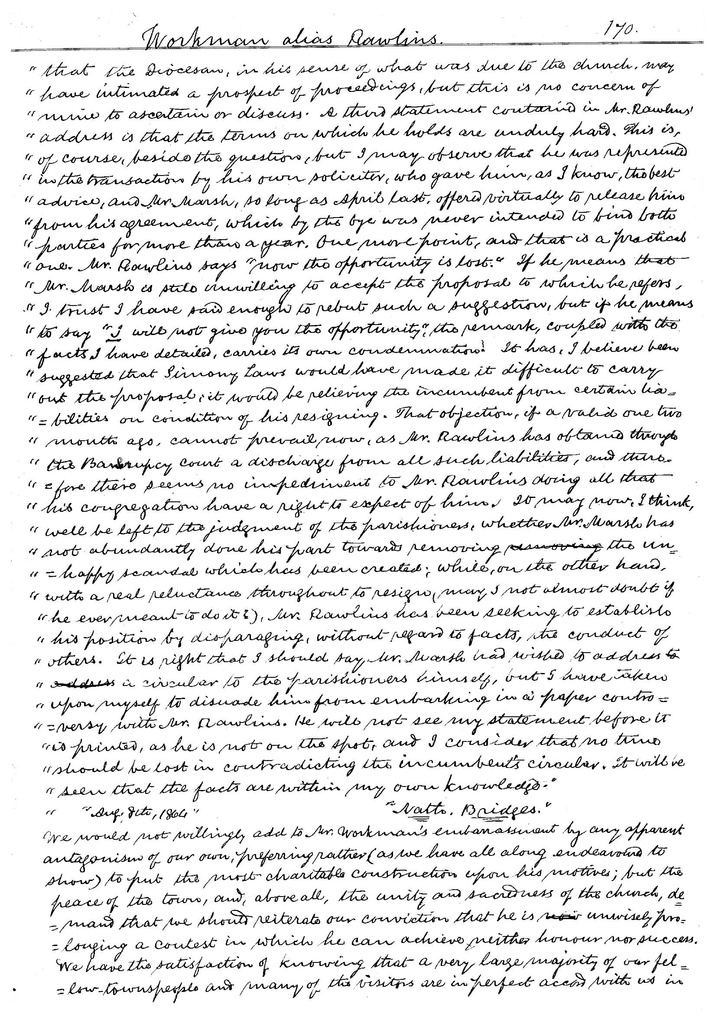 Workman alias Rawlins. 170.
" that the Diocesan, in his sense of what was due to the church, may
" have intimated a prospect of proceedings, but this is no concern of
" mine to ascertain or discuss. A third statement contained in Mr. Rawlins'
" address is that the terms on which he holds are unduly hard. This is,
" of course, beside the question, but I may observe that he was represented
" in the transaction by his own soliciter, who gave him, as I know, the best
" advice, and Mr. Marsh, so long as April last, offered virtually to release him
" from his agreement, which by the bye was never intended to bind both
" parties for more than a year. One more point, and that is a practical
" one. Mr. Rawlins says "now the opportunity is lost." If he means that
" Mr. Marsh is still unwilling to accept the proposal to which he refers,
" I trust I have said enough to rebut such a suggestion, but if he means
" to say "I will not give you the opportunity," the remark, coupled with the
" facts I have detailed, carries its own condemnation! It has, I believe been
" suggested that Simony Laws would have made it difficult to carry
" out the proposal; it would be relieving the incumbent from certain lia=
" =bilities on condition of his resigning. That objection, if a valid one two
" months ago, cannot prevail now, as Mr. Rawlins has obtained through
" the Bankrupcy court a discharge from all such liabilities, and there=
" =fore there seems no impediment to Mr. Rawlins doing all that
" his congregation have a right to expect of him. It may now, I think,
" well be left to the judgment of the parishioners, whether Mr. Marsh has
" not abundantly done his part towards removing removing the un=
" =happy scandal which has been created; while, on the other hand,
" with a real reluctance throughout to resign, may I not almost doubt if
" he ever meant to do it?), Mr. Rawlins has been seeking to establish
" his position by disparaging, without regard to facts, the conduct of
" others. It is right that I should say Mr. Marsh had wished to address to
" address a circular to the parishioners himself, but I have taken
" upon myself to disuade him from embarking in a paper contro=
" =versy with Mr. Rawlins. He will not see my statement before it
" is printed, as he is not on the spot, and I consider that no time
" should be lost in contradicting the incumbent's circular. It will be
" seen that the facts are within my own knowledge."
" "Aug. 8th, 1864" "Nath. Bridges."
We would not willingly add to Mr. Workman's embarrassment by any apparent
antagonism of our own, preferring rather (as we have all along endeavoured to
show) to put the most charitable construction upon his motives; but the
peace of the town, and, above all, the unity and sacredness of the church, de=
=mand that we should reiterate our conviction that he is now unwisely pro=
=longing a contest in which he can achieve neither honour nor success.
We have the satisfaction of knowing that a very large majority of our fel=
=low-townspeople and many of the visitors are in perfect accord with us in